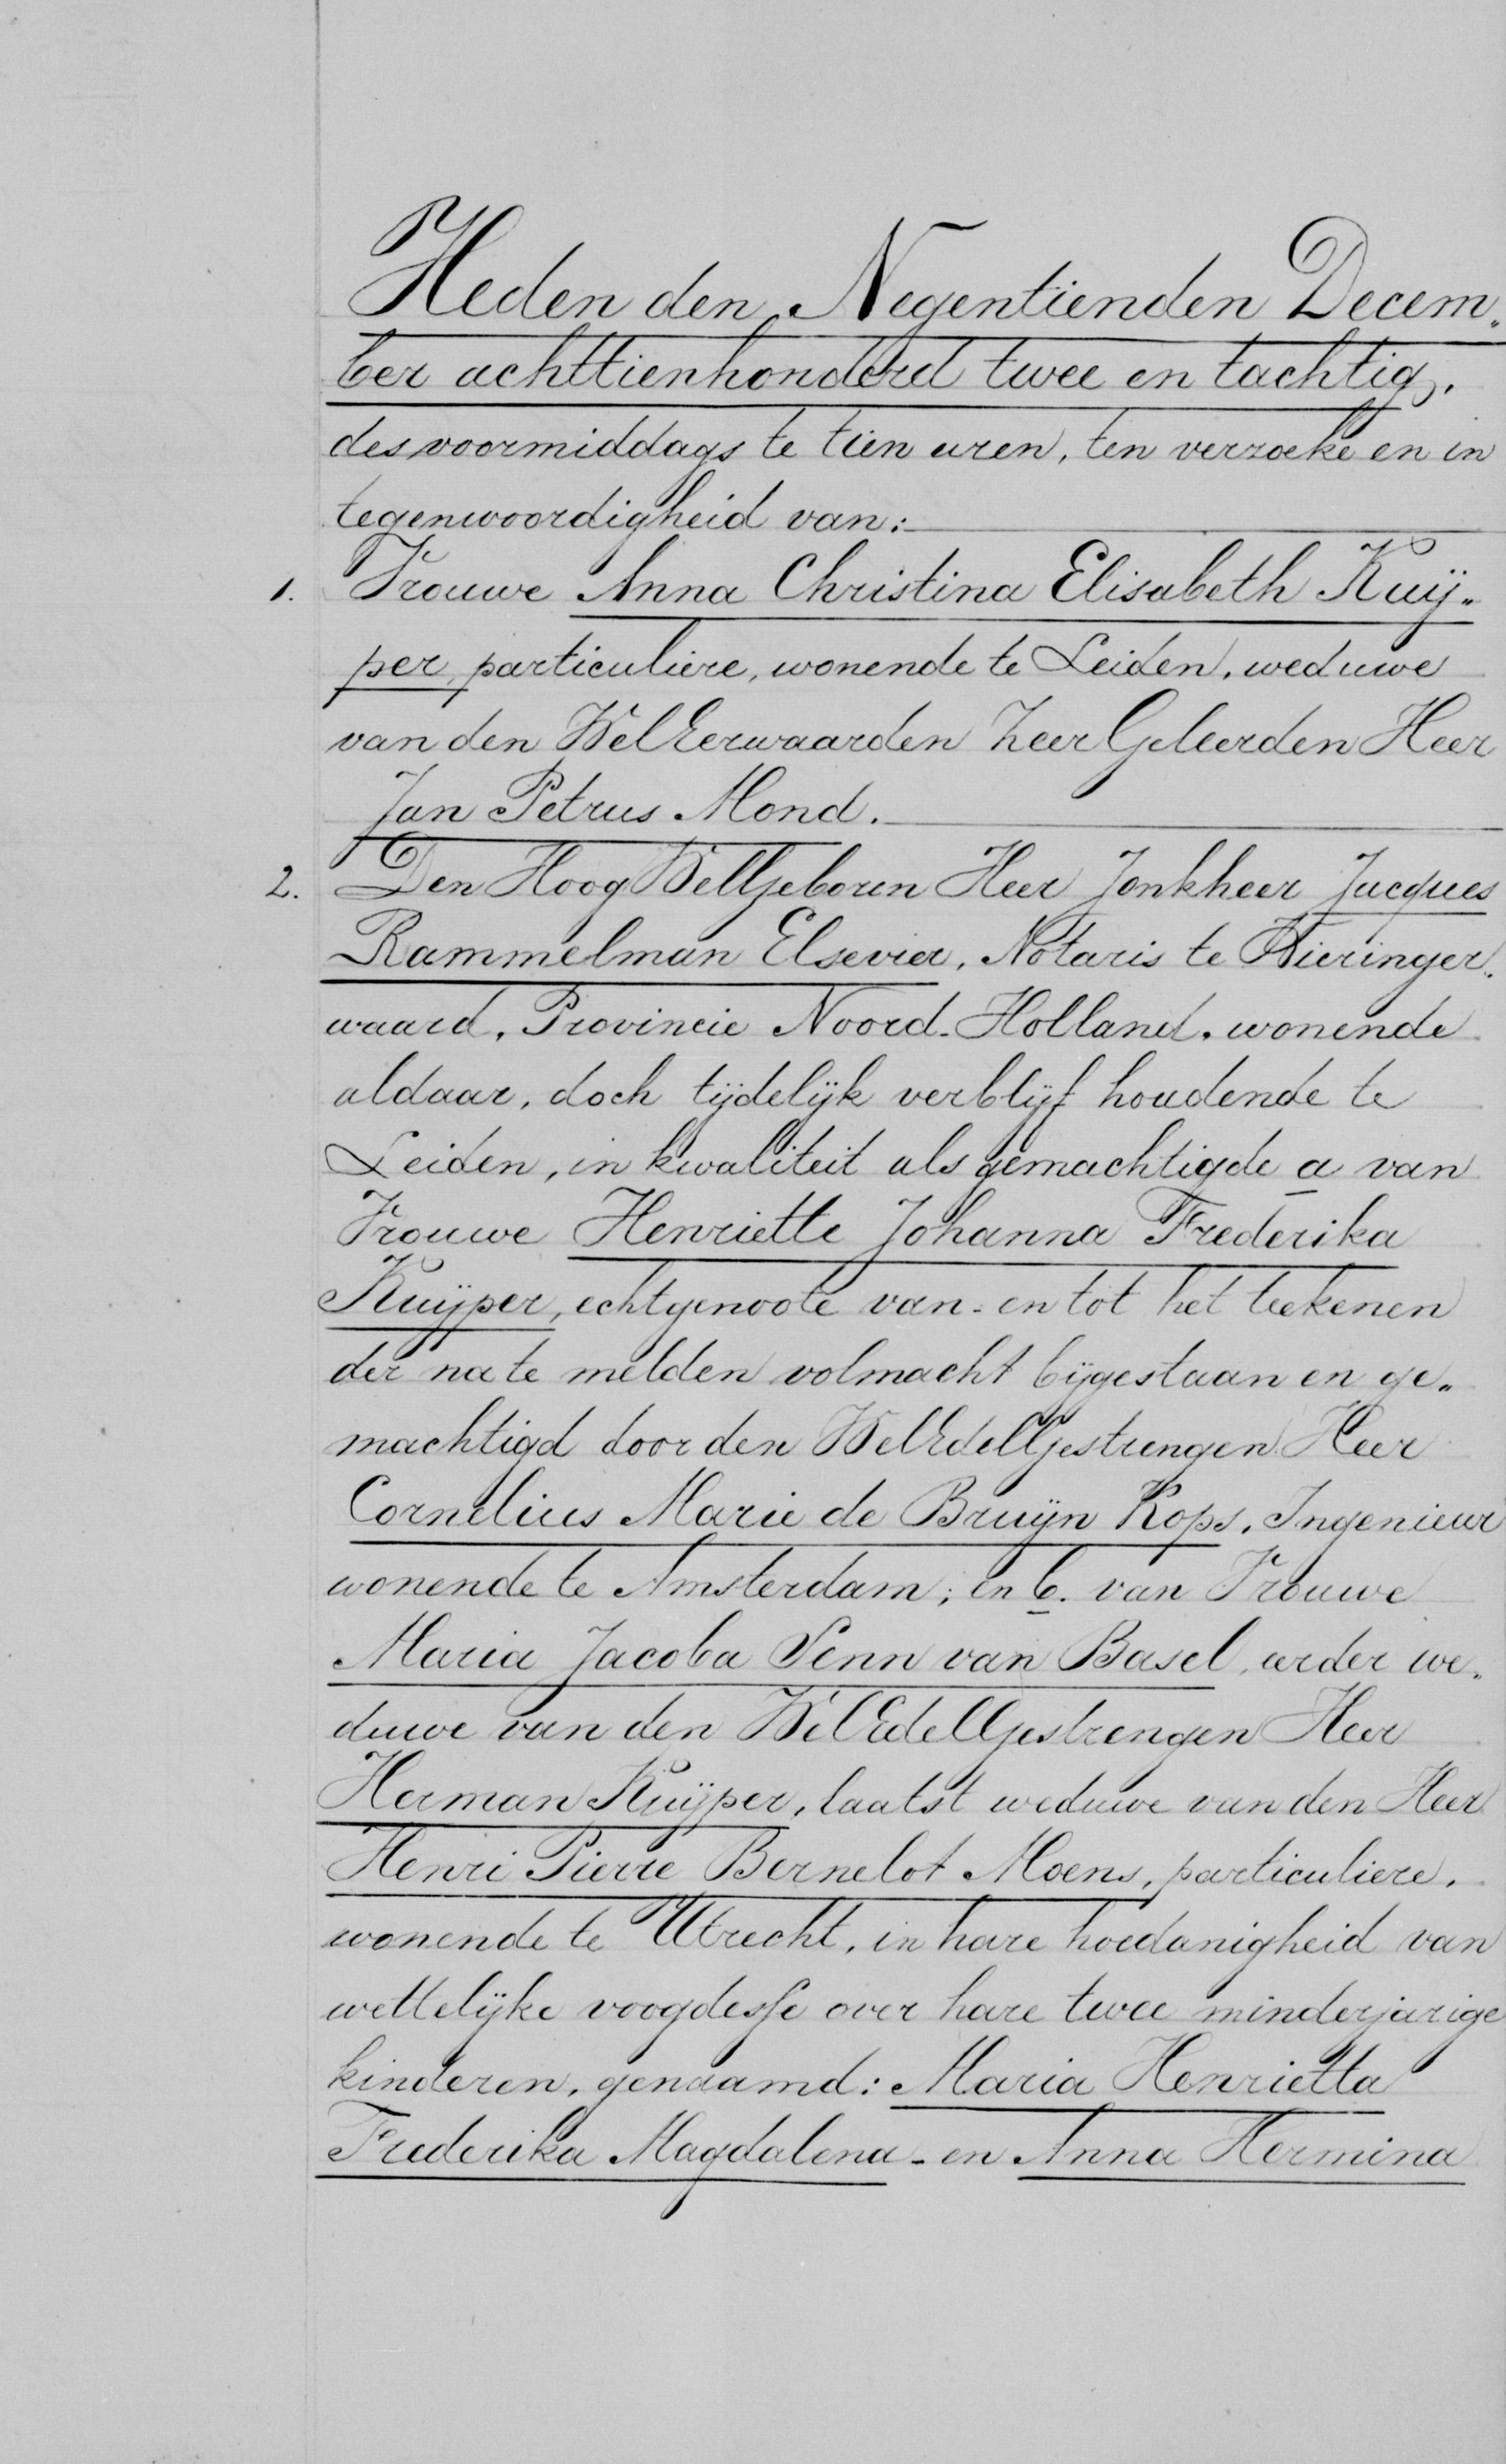 Heden den Negentienden Decem„
ber achttienhonderd twee en tachtig,
des voormiddags te tien uren, ten verzoeke en in
tegenwoordigheid van:
1. Vrouwe Anna Christina Elisabeth Kuij„
per, particuliere, wonende te Leiden, weduwe
van den WelEerwaarden ZeerGeleerden Heer
Jan Petrus Mond.
2. Den HoogWelGeboren Heer Jonkheer Jacques
Rammelman Elsevier, Notaris te Wieringer„
waard, Provincie Noord-Holland, wonende
aldaar, doch tijdelijk verblijf houdende te
Leiden, in kwaliteit als gemachtigde a van
Vrouwe Henriette Johanna Frederika
Kuijper, echtgenoote van- en tot het teekenen
der na te melden volmacht bijgestaan en ge„
machtigd door den WelEdelGestrengen Heer
Cornelius Marie de Bruijn Kops, Ingenieur
wonende te Amsterdam; en b. van Vrouwe
Maria Jacoba Senn van Basel, eerder we„
duwe van den WelEdelGestrengen Heer
Herman Kuijper, laatst weduwe van den Heer
Henri Pierre Bernelot Moens, particuliere,
wonende te Utrecht, in hare hoedanigheid van
wettelijke voogdesse over hare twee minderjarige
kinderen, genaamd: Maria Henrietta
Frederika Magdalena- en Anna Hermina